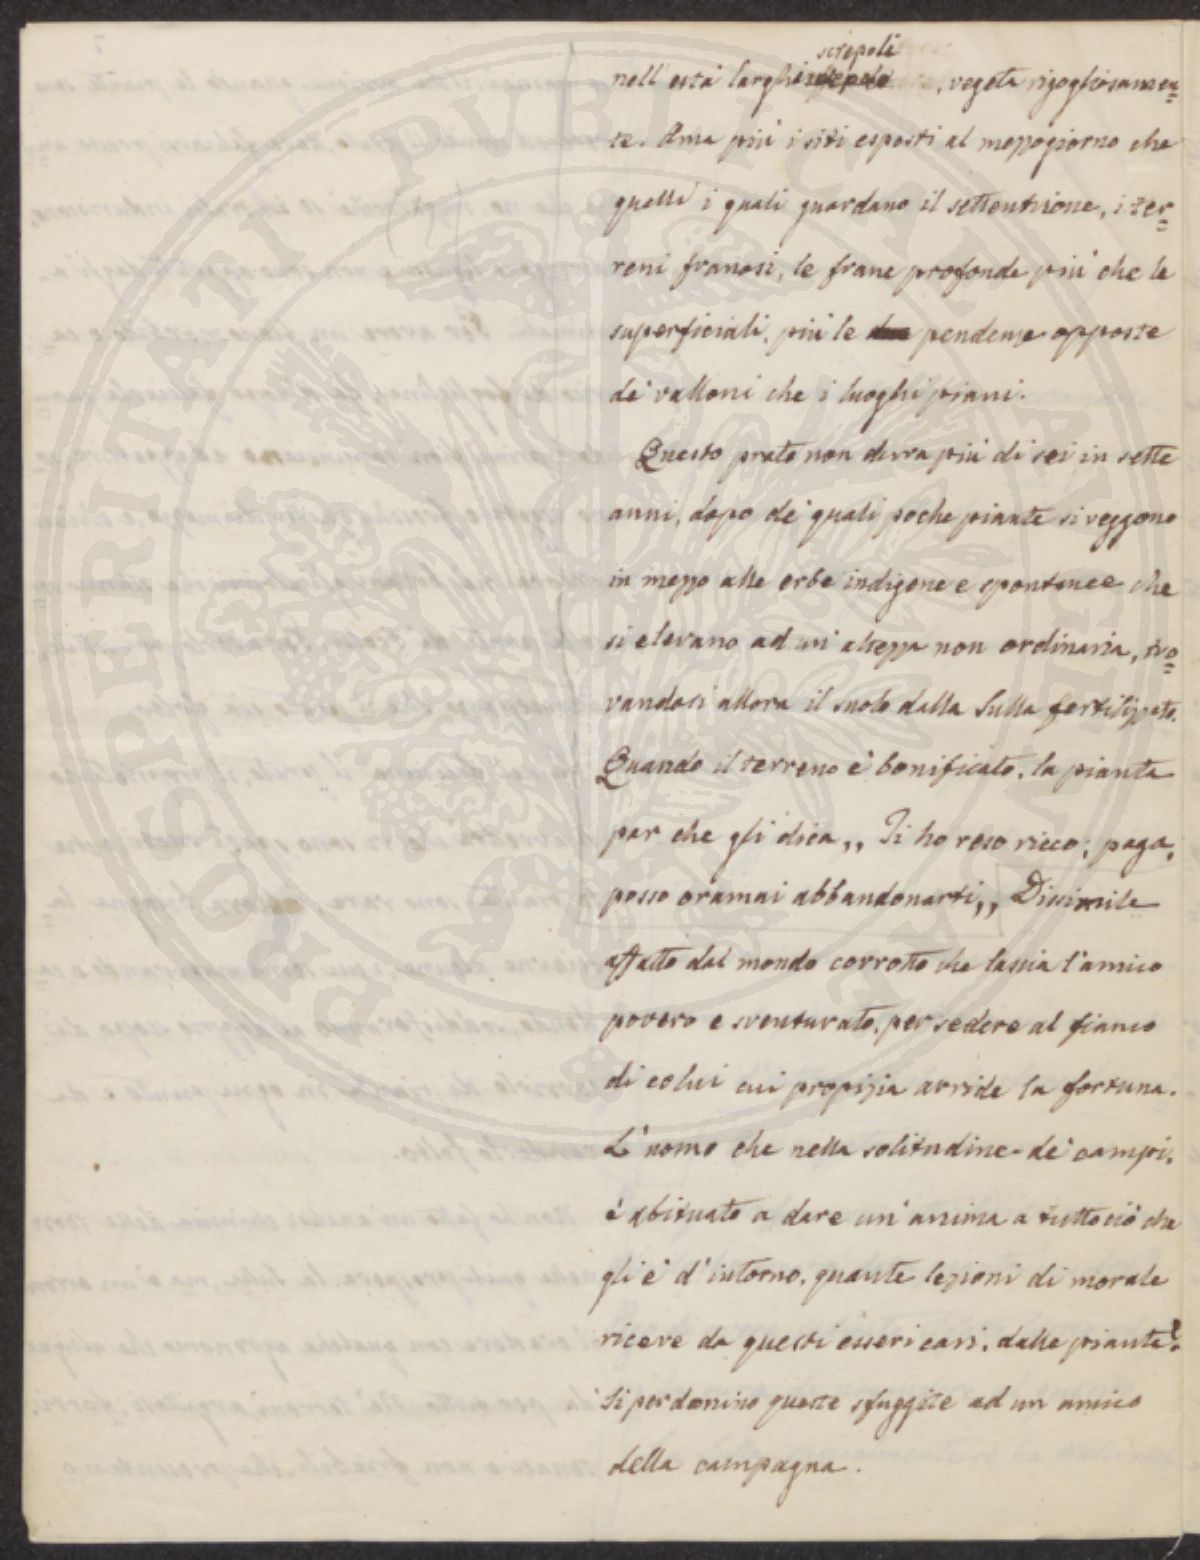 screpoli
nell'està larghi, vegeta rigogliosamen=
te. Ama più i siti esposti al mezzogiorno che
quelli i quali guardano il settentrione, i ter=
reni franosi, le frane profonde più che le
superficiali, più le pendenze opposte
de' valloni che i luoghi piani.
Questo prato non durra più di sei in sette
anni, dopo de' quali poche piante si veggono
in mezzo alle erbe indigene e spontanee che
si elevano ad un' altezza non ordinaria, tro=
vandosi allora il suolo dalla Sulla fertilizzato.
Quando il terreno è bonificato, la pianta
par che gli dica „ Ti ho reso ricco; paga,
posso oramai abbandonarti „ Dissimile
affatto dal mondo corrotto che lascia l'amico
povero e sventurato, per sedere al fianco
di colui cui propizia arride la fortuna.
L'uomo che nella solitudine de' campi,
è abituato a dare un' anima a tutto ciò che
gli è d'intorno, quante lezioni di morale
riceve da questi esseri cari, dalle piante!
Si perdonino queste sfuggite ad un amico
della campagna.
PROSPERITATI PVBLICAE AVGENDAE